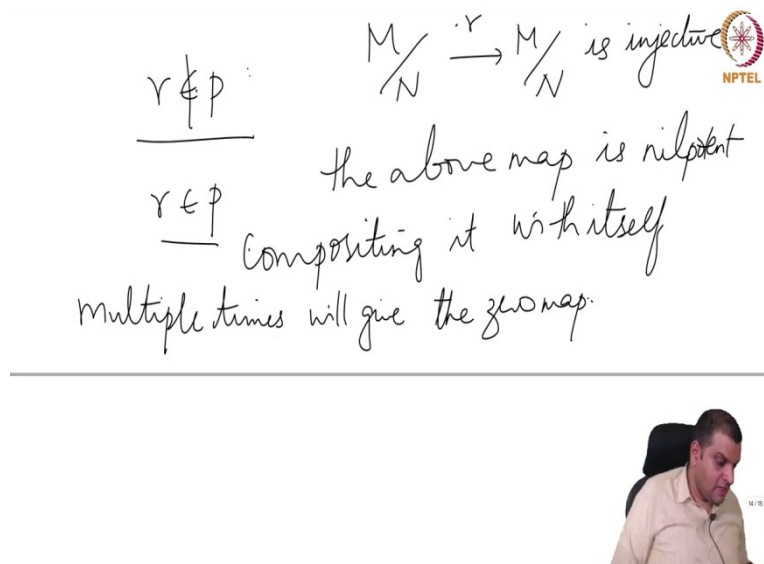 r ∉ p : M/N —·r→ M/N is injective
the above map is nilpotent
r ∈ p
compositing it with itself
multiple times will give the zero map.
NPTEL
14 / 15